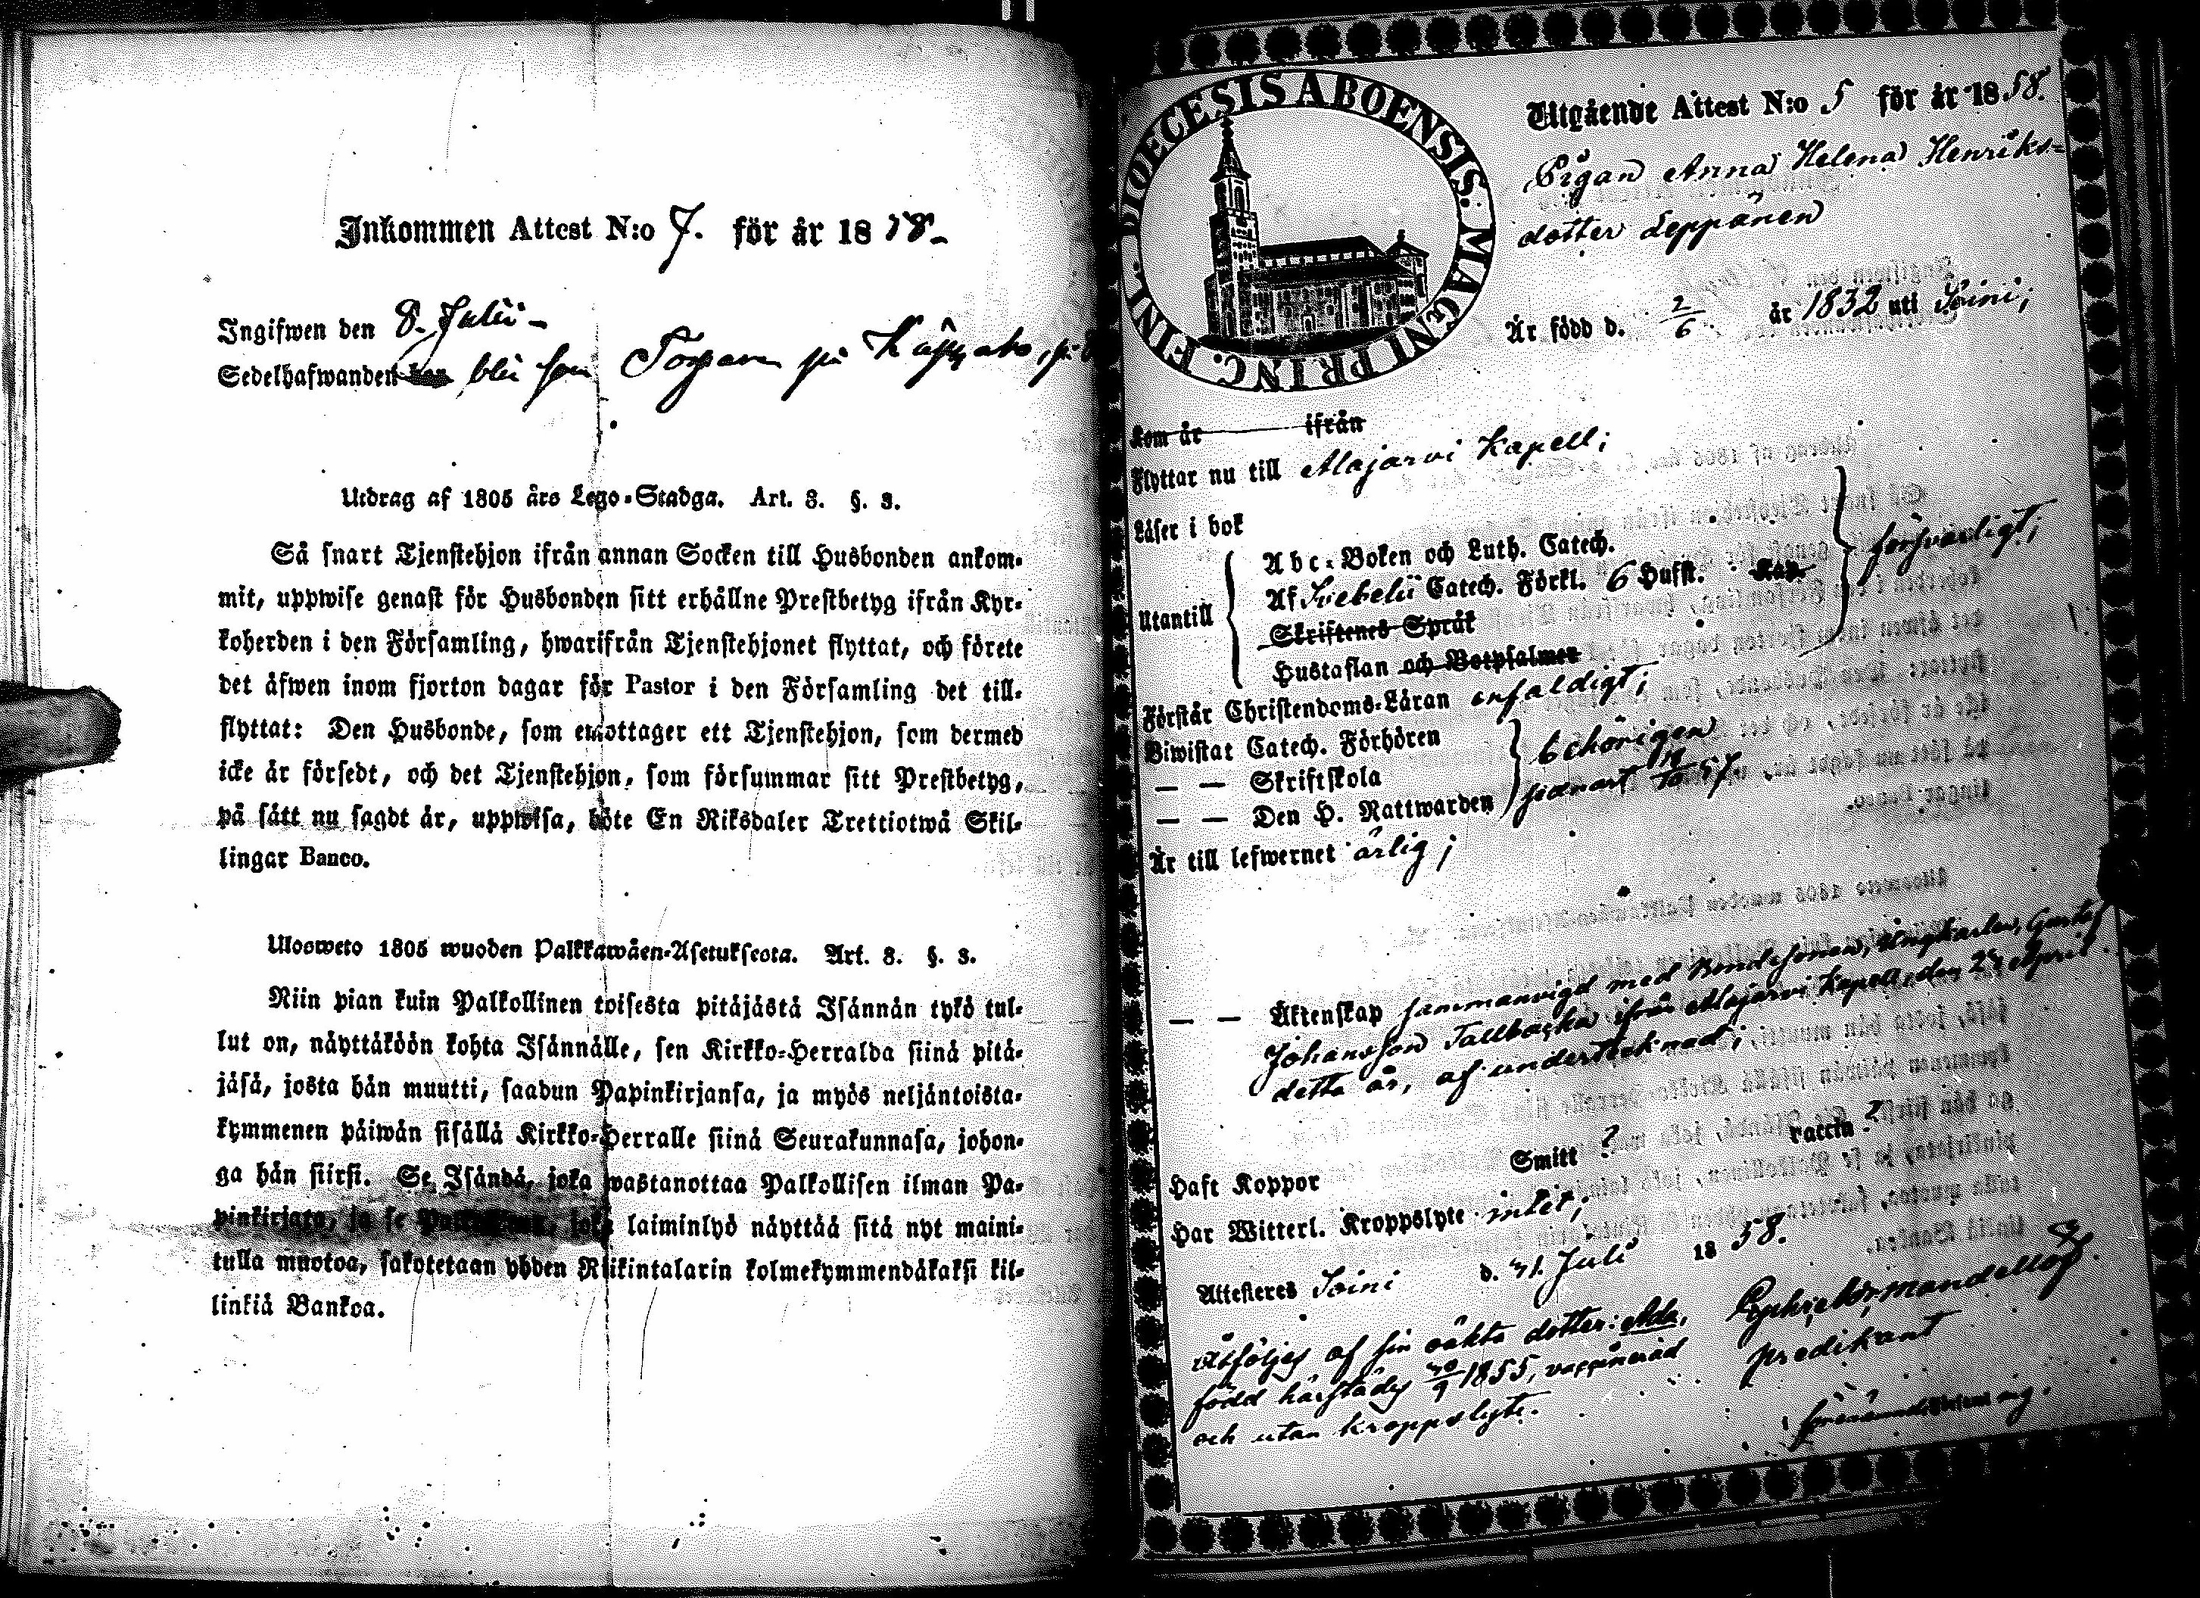 Inkommen Attest N:o 7. för år 18
Ingifwen den 8. Julii
Sedelhafwanden blir som på
Utdrag af 1805 års Lego-Stadga. Art. 8. §. 3.
Så snart Tjenstehjon ifrån annan Socken till Husbonden ankom-
mit, uppwise genast för Husbonden sitt erhållne Prestbetyg ifrån Kyr-
koherden i den Församling, hwarifrån Tjenstehjonet flyttat, och förete
det äfwen inom fjorton dagar för Pastor i den Församling det till-
flyttat: Den Husbonde, som emottager ett Tjenstehjon, som dermed
icke är försedt, och det Tjenstehjon, som försummar sitt Prestbetyg,
på sätt nu sagdt är, uppwisa, böte En Riksdaler Trettiotwå Skil-
lingar Banco.
Ulosweto 1805 wuoden Palkkawäen-Asetuksesta. Art. 8. §. 3.
Niin pian kuin Palkollinen toisesta pitäjästä Isännän tykö tul-
lut on, näyttäköön kohta Isännälle, sen Kirkko-Herralda siinä pitä-
jäsä, josta hän muutti, saadun Papinkirjansa, ja myös neljäntoista-
kymmenen päiwän sisällä Kirkko-Herralle siinä Seurakunnasa, johon-
ga hän siirsi. Se Isändä, joka wastanottaa Palkollisen ilman Pa-
pinkirjata, ja se Palkollinen, joka laiminlyö näyttää sitä nyt maini-
tulla muotoa, sakotetaan yhden Riikintalarin kolmekymmendäkaksi kil-
linkiä Bankoa.
DIOECESIS ABOENSIS. MAGNI PRINC. FINL.
Utgående Attest N:o 5 för år 1858.
Pigan Anna Helena Henriks-
dotter Leppänen
Är född d. 2/6 år 1832 uti Soini;
Kom år ifrån
Flyttar nu till Alajärvi Kapell;
Läser i bok
Abc-Boken och Luth. Catech.
Utantill
Af Svebelii Catech. Förkl. 6 Hufst. Kap. försvarligt;
Skriftenes Språk
Hustaflan och Botpsalmer
Förstår Christendoms-Läran enfaldigt;
Biwistat Catech. Förhören
— — Skriftskola behörigen
— — Den H. Nattwarden
Är till lefwernet ärlig;
— — Äktenskap sammanvigd med Bondesonen, Ungkarlen, Gustaf
Johansson Tallbacka ifrån Alajärvi Kapell, den 24 April
detta år, af undertecknad;
Haft Koppor Smitt ? vaccin ?
Har Witterl. Kroppslyte intet;
Attesteres Soini d. 31. Juli 1858.
Åtföljes af sin oäkta dotter: Ada,
född härstädes 1855, vaccinerad
och utan kroppslyte.
predikant